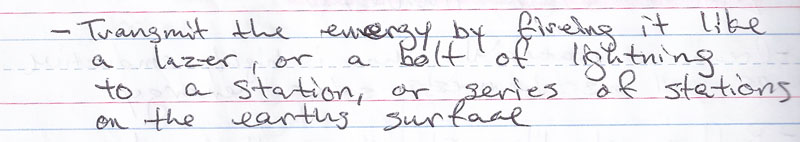 - Transmit the energy by fireing it like
a lazer, or a bolt of lightning
to a station, or series of stations
on the earths surface